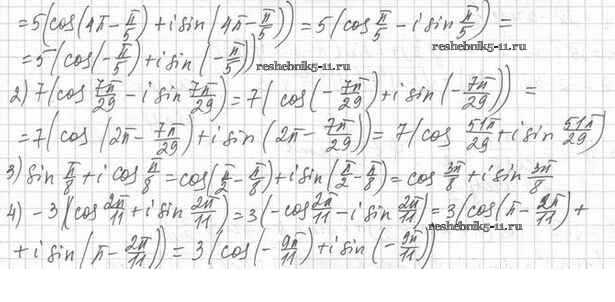 =5(cos(4π-π/5)+i sin(4π-π/5))=5(cos π/5 - i sin π/5)=
=5(cos(-π/5)+i sin(-π/5))
reshebnik5-11.ru
reshebnik5-11.ru
2) 7(cos 7π/29 - i sin 7π/29)=7(cos(-7π/29)+i sin(-7π/29))=
=7(cos(2π-7π/29)+i sin(2π-7π/29))=7(cos 51π/29+i sin 51π/29)
3) sin π/8+i cos π/8=cos(π/2-π/8)+i sin(π/2-π/8)=cos 3π/8+i sin 3π/8
4) -3(cos 2π/11+i sin 2π/11)=3(-cos 2π/11-i sin 2π/11)=3(cos(π-2π/11)+
reshebnik5-11.ru
+i sin(π-2π/11))=3(cos(-9π/11)+i sin(-9π/11))